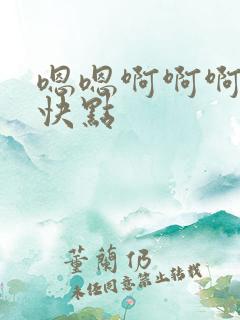 嗯嗯啊啊啊
快點
董蘭仍
未經同意禁止轉載